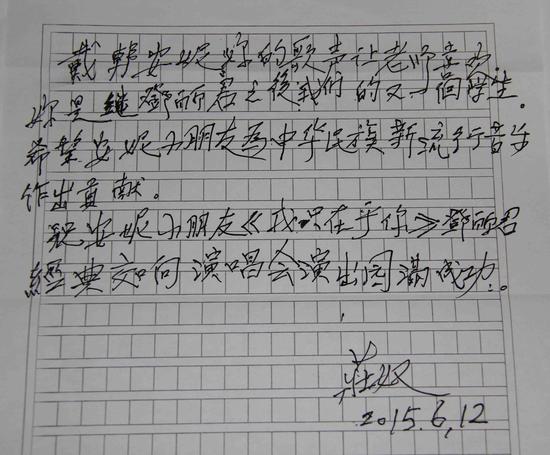 戴韩安妮妳的歌声让老师喜欢
妳是继鄧丽君之後我们的又一個学生.
希望安妮小朋友為中华民族新流行音乐
作出貢献。
祝安妮小朋友《我只在乎你》鄧丽君
經典如何演唱会演出圆满成功.
莊奴
2015.6,12